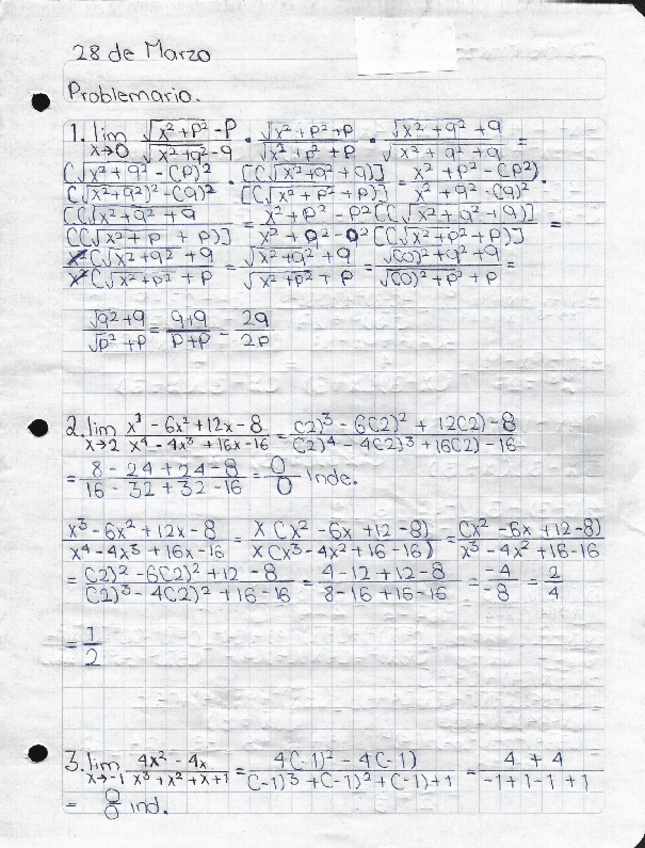 28 de Marzo
Problemario.
1. lim x→0 √(x²+p²) - p / √(x²+q²) - q · √(x²+p²) + p / √(x²+p²) + p · √(x²+q²) + q / √(x²+q²) + q =
(√x²+q² - (p)² / (√x²+q²)² - (q)² · [(√x²+q² + q)] / [(√x²+p² + p)] = x²+p² - (p²) / x²+q² - (q)² ·
[(√x²+q² + q / [(√x²+p + p)] = x²+p²-p² [(√x²+q² + q)] / x²+q²-q² [(√x²+p²+p)] =
x² (√x²+q² + q / x² (√x²+p² + p = √x²+q² + q / √x²+p² + p = √(0)²+q²+q / √(0)²+p²+p =
√q²+q / √p²+p = q+q / p+p = 2q / 2p
2. lim x→2 x³ - 6x² + 12x - 8 / x⁴ - 4x³ + 16x - 16 = (2)³ - 6(2)² + 12(2) - 8 / (2)⁴ - 4(2)³ + 16(2) - 16
= 8 - 24 + 24 - 8 / 16 - 32 + 32 - 16 = 0 / 0 Inde.
x³ - 6x² + 12x - 8 / x⁴ - 4x³ + 16x - 16 = x (x² - 6x + 12 - 8) / x (x³ - 4x² + 16 - 16) = (x² - 6x + 12 - 8) / x³ - 4x² + 16 - 16
= (2)² - 6(2)² + 12 - 8 / (2)³ - 4(2)² + 16 - 16 = 4 - 12 + 12 - 8 / 8 - 16 + 16 - 16 = -4 / -8 = 2 / 4
= 1 / 2
3. lim x→-1 4x² - 4x / x³ + x² + x + 1 = 4(-1)² - 4(-1) / (-1)³ + (-1)² + (-1) + 1 = 4 + 4 / -1 + 1 - 1 + 1
= 0 / 0 ind.